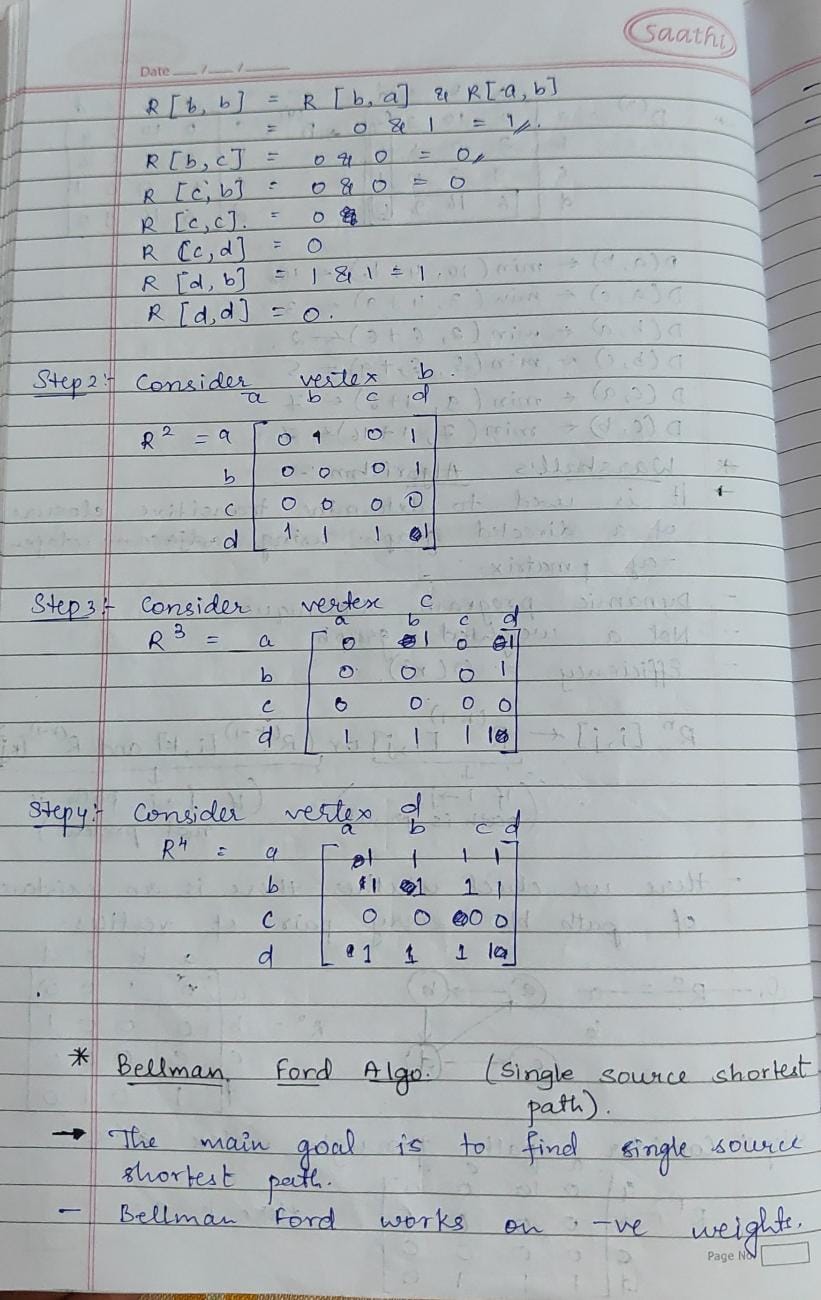 Saathi
Date __/__/__
R [b, b] = R [b, a] & R[a, b]
= 0 & 1 = 1
R [b, c] = 0 & 0 = 0
R [c, b] = 0 & 0 = 0
R [c, c] = 0
R [c, d] = 0
R [d, b] = 1 & 1 = 1.
R [d, d] = 0.
Step 2:- Consider vertex b.
a b c d
R² = a 0 1 0 1
b 0 0 0 1
c 0 0 0 0
d 1 1 1 1
Step 3:- Consider vertex c
a b c d
R³ = a 0 1 0 1
b 0 0 0 1
c 0 0 0 0
d 1 1 1 1
Step 4:- Consider vertex d
a b c d
R⁴ = a 1 1 1 1
b 1 1 1 1
c 0 0 0 0
d 1 1 1 1
* Bellman Ford Algo. (Single source shortest
path).
→ The main goal is to find single source
shortest path.
- Bellman Ford works on -ve weights.
Page No